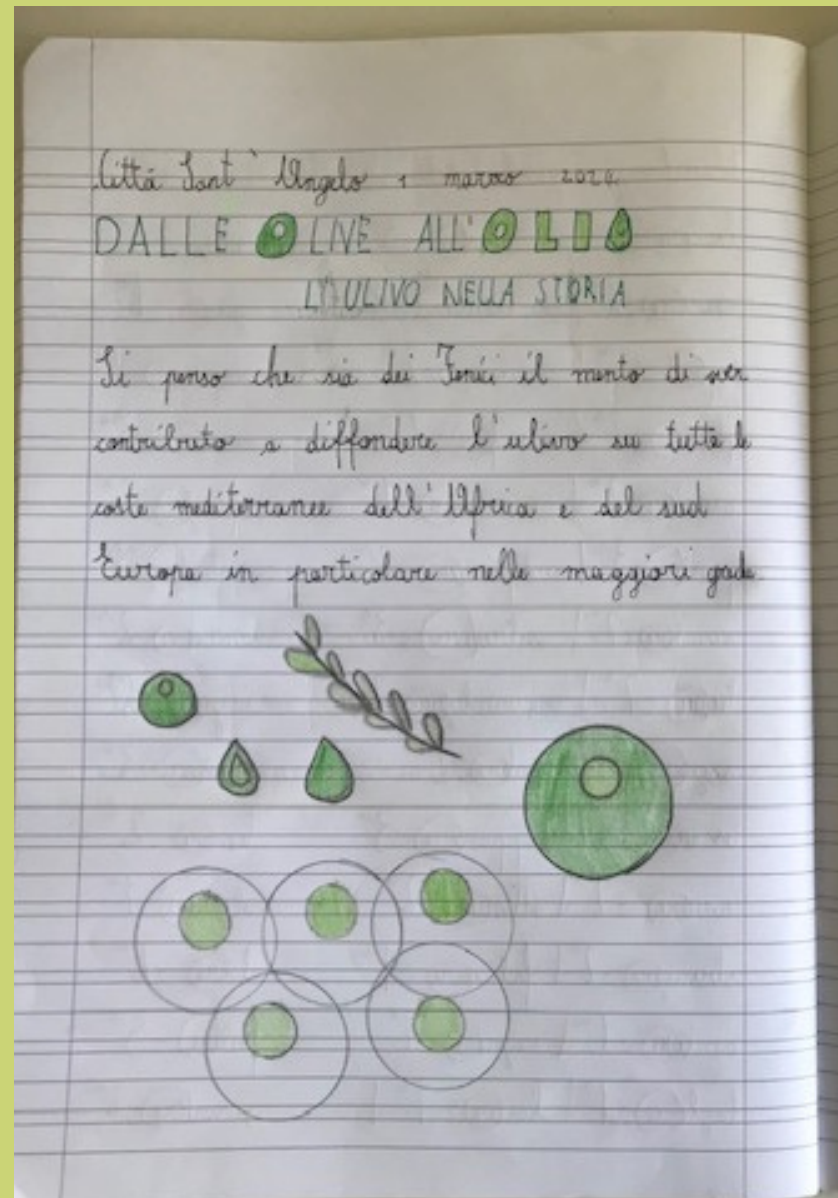 Città Sant'Angelo 1 marzo 2024
DALLE OLIVE ALL'OLIO
L'ULIVO NELLA STORIA
Si penso che sia dei Fenici il merito di aver
contribuito a diffondere l'ulivo su tutte le
coste mediterranee dell'Africa e del sud
Europa in particolare nelle maggiori